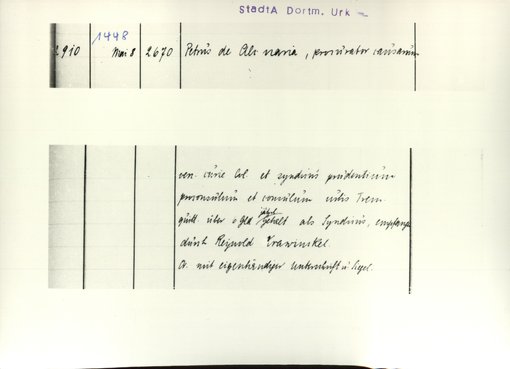 StadtA Dortm. Urk –
1448
2910 Mai 8 2670 Petrus de , procurator causarum
ven. curie Col. et syndicus prudentium
proconsulum et consulum Trem.
quitt. über Gld jährl. Gehalt als Syndicus, empfangen
durch Reynold Krawinckel.
mit eigenhändiger Unterschrift u. Siegel.